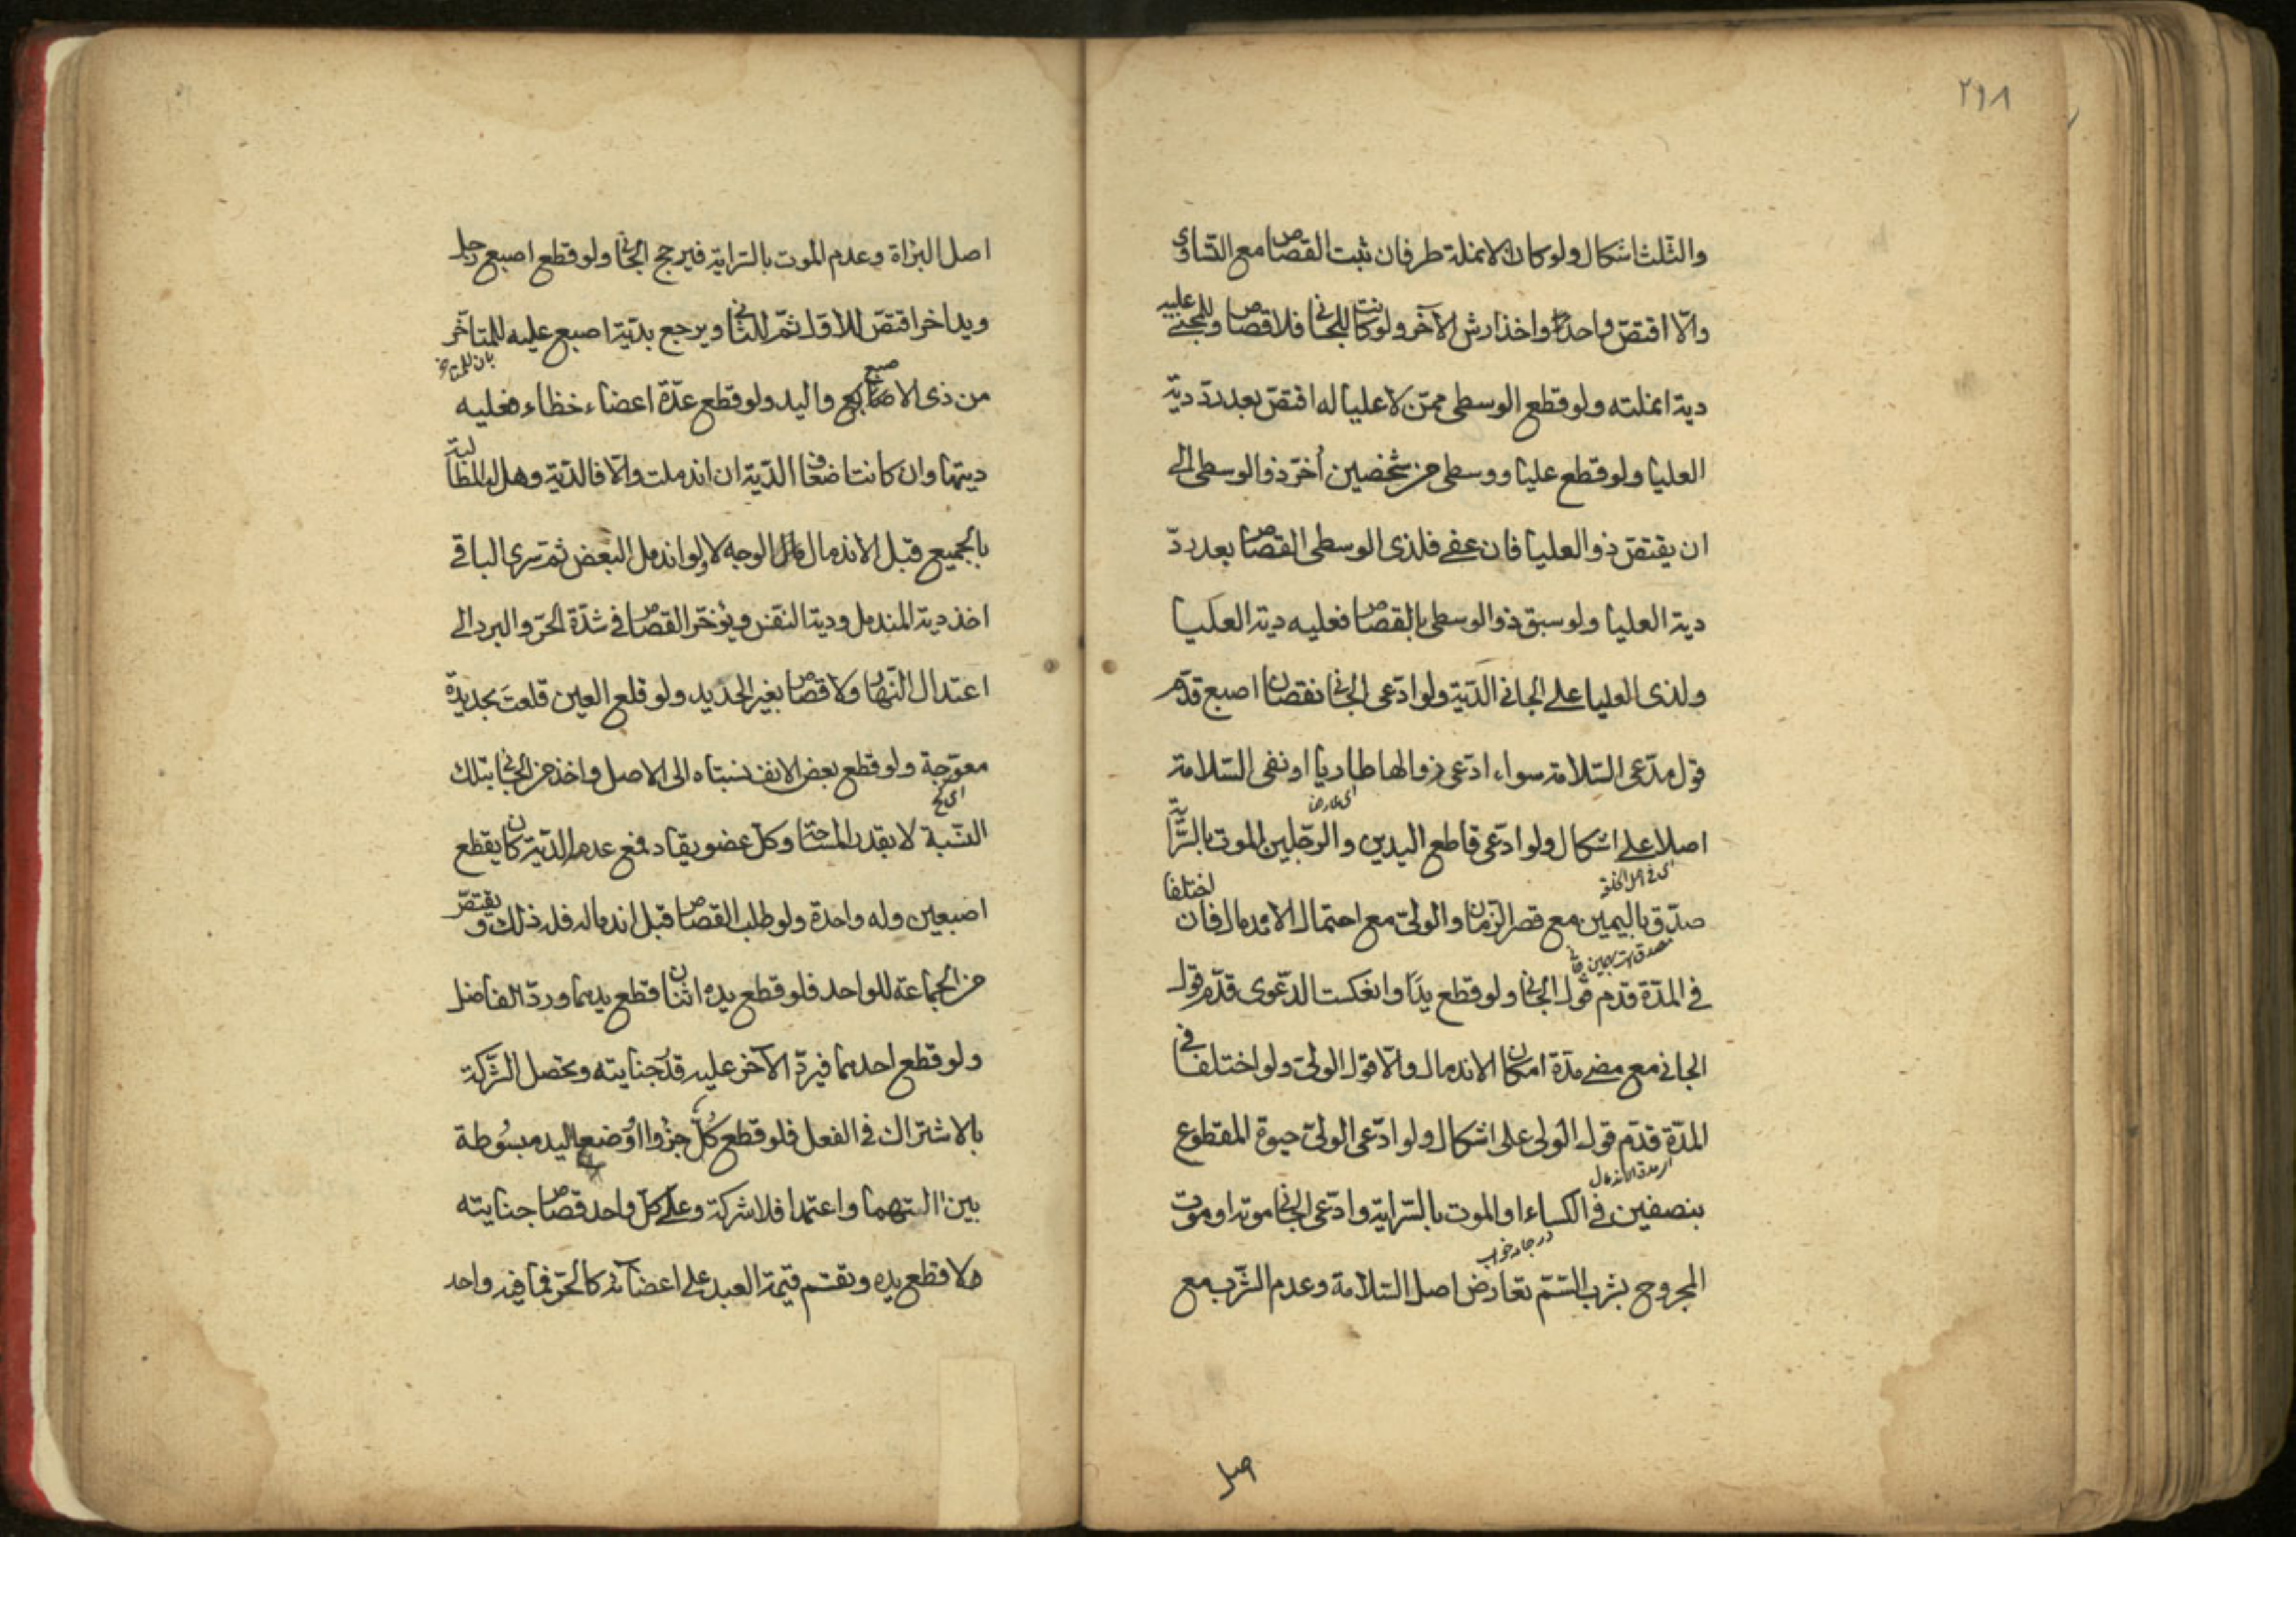 ٢٩٨
والثلث اشكال ولو كان لانملة طرفان ثبت القصاص مع التساوى
والّا اقتصّ واحدة واخذ ارش الآخر ولو كانت للجانى فلا قصاص وللمجنى عليه
دية انملته ولو قطع الوسطى ممّن لا عليا له اقتصّ بعد ردّ دية
العليا ولو قطع عليا ووسطى من شخصين أخّر ذو الوسطى الى
ان يقتصّ ذو العليا فان عفى فلذى الوسطى القصاص بعد ردّ
دية العليا ولو سبق ذو الوسطى بالقصاص فعليه دية العليا
ولذى العليا على الجانى الدّية ولو ادّعى الجانى نقصان اصبع قدّم
قول مدّعى السّلامة سواء ادّعى زوالها طاريا او نفى السّلامة
اى عارضا
اصلا على اشكال ولو ادّعى قاطع اليدين والرّجلين الموت بالسّراية
اى فى اصل الخلقة
صدّق باليمين مع قصر الزمان والولىّ مع احتمال الاندمال فان اختلفا
فى المدّة قدم قول الجانى ولو قطع يدًا وانعكست الدّعوى قدّم قول
الجانى مع مضى مدّة امكان الاندمال والّا قول الولىّ ولو اختلفا فى
المدّة قدّم قول الولى على اشكال ولو ادّعى الولىّ حيوة المقطوع
بنصفين فى الكساء او الموت بالسّراية وادّعى الجانى موته او موت
در جامه خواب
المجروح بشرب السّمّ تعارض اصل السّلامة وعدم الشّرب مع
اصل
اصل البراة وعدم الموت بالسّراية فيرجح الجانى ولو قطع اصبع رجل
ويد اخر اقتصّ للاوّل ثمّ للثانى ويرجع بدية اصبع عليه للمتأخّر
من ذى الاصبع واليد ولو قطع عدّة اعضاء خطاء فعليه
ديتها وان كانت اضعاف الدّية ان اندملت والّا فالدّية وهل له المطالبة
بالجميع قبل الاندمال الوجه لا ولو اندمل البعض ثم سرى الباقى
اخذ دية المندمل ودية النفس ويؤخّر القصاص فى شدّة الحرّ والبرد الى
اعتدال النّهار ولا قصاص بغير الحديد ولو قلع العين قلعت بحديدة
معوّجة ولو قطع بعض الانف نسبناه الى الاصل واخذ من الجانى بتلك
النّسبة لا بقدر المساحة وكلّ عضو يقاد فمع عدمه الدّية كان يقطع
اصبعين وله واحدة ولو طلب القصاص قبل اندماله فله ذلك ويقتصّ
من الجماعة للواحد فلو قطع يده اثنان قطع يدهما وردّ الفاضل
ولو قطع احدهما فيردّ الآخر عليه قدر جنايته وتحصل الشّركة
بالاشتراك فى الفعل فلو قطع كلّ جزوا او وضع اليد مبسوطة
بين التيهما واعتمدا فلا شركة وعلى كلّ واحد قصاص جنايته
لا قطع يده وتقسم قيمة العبد على اعضائه كالحرّ فما فيه واحد